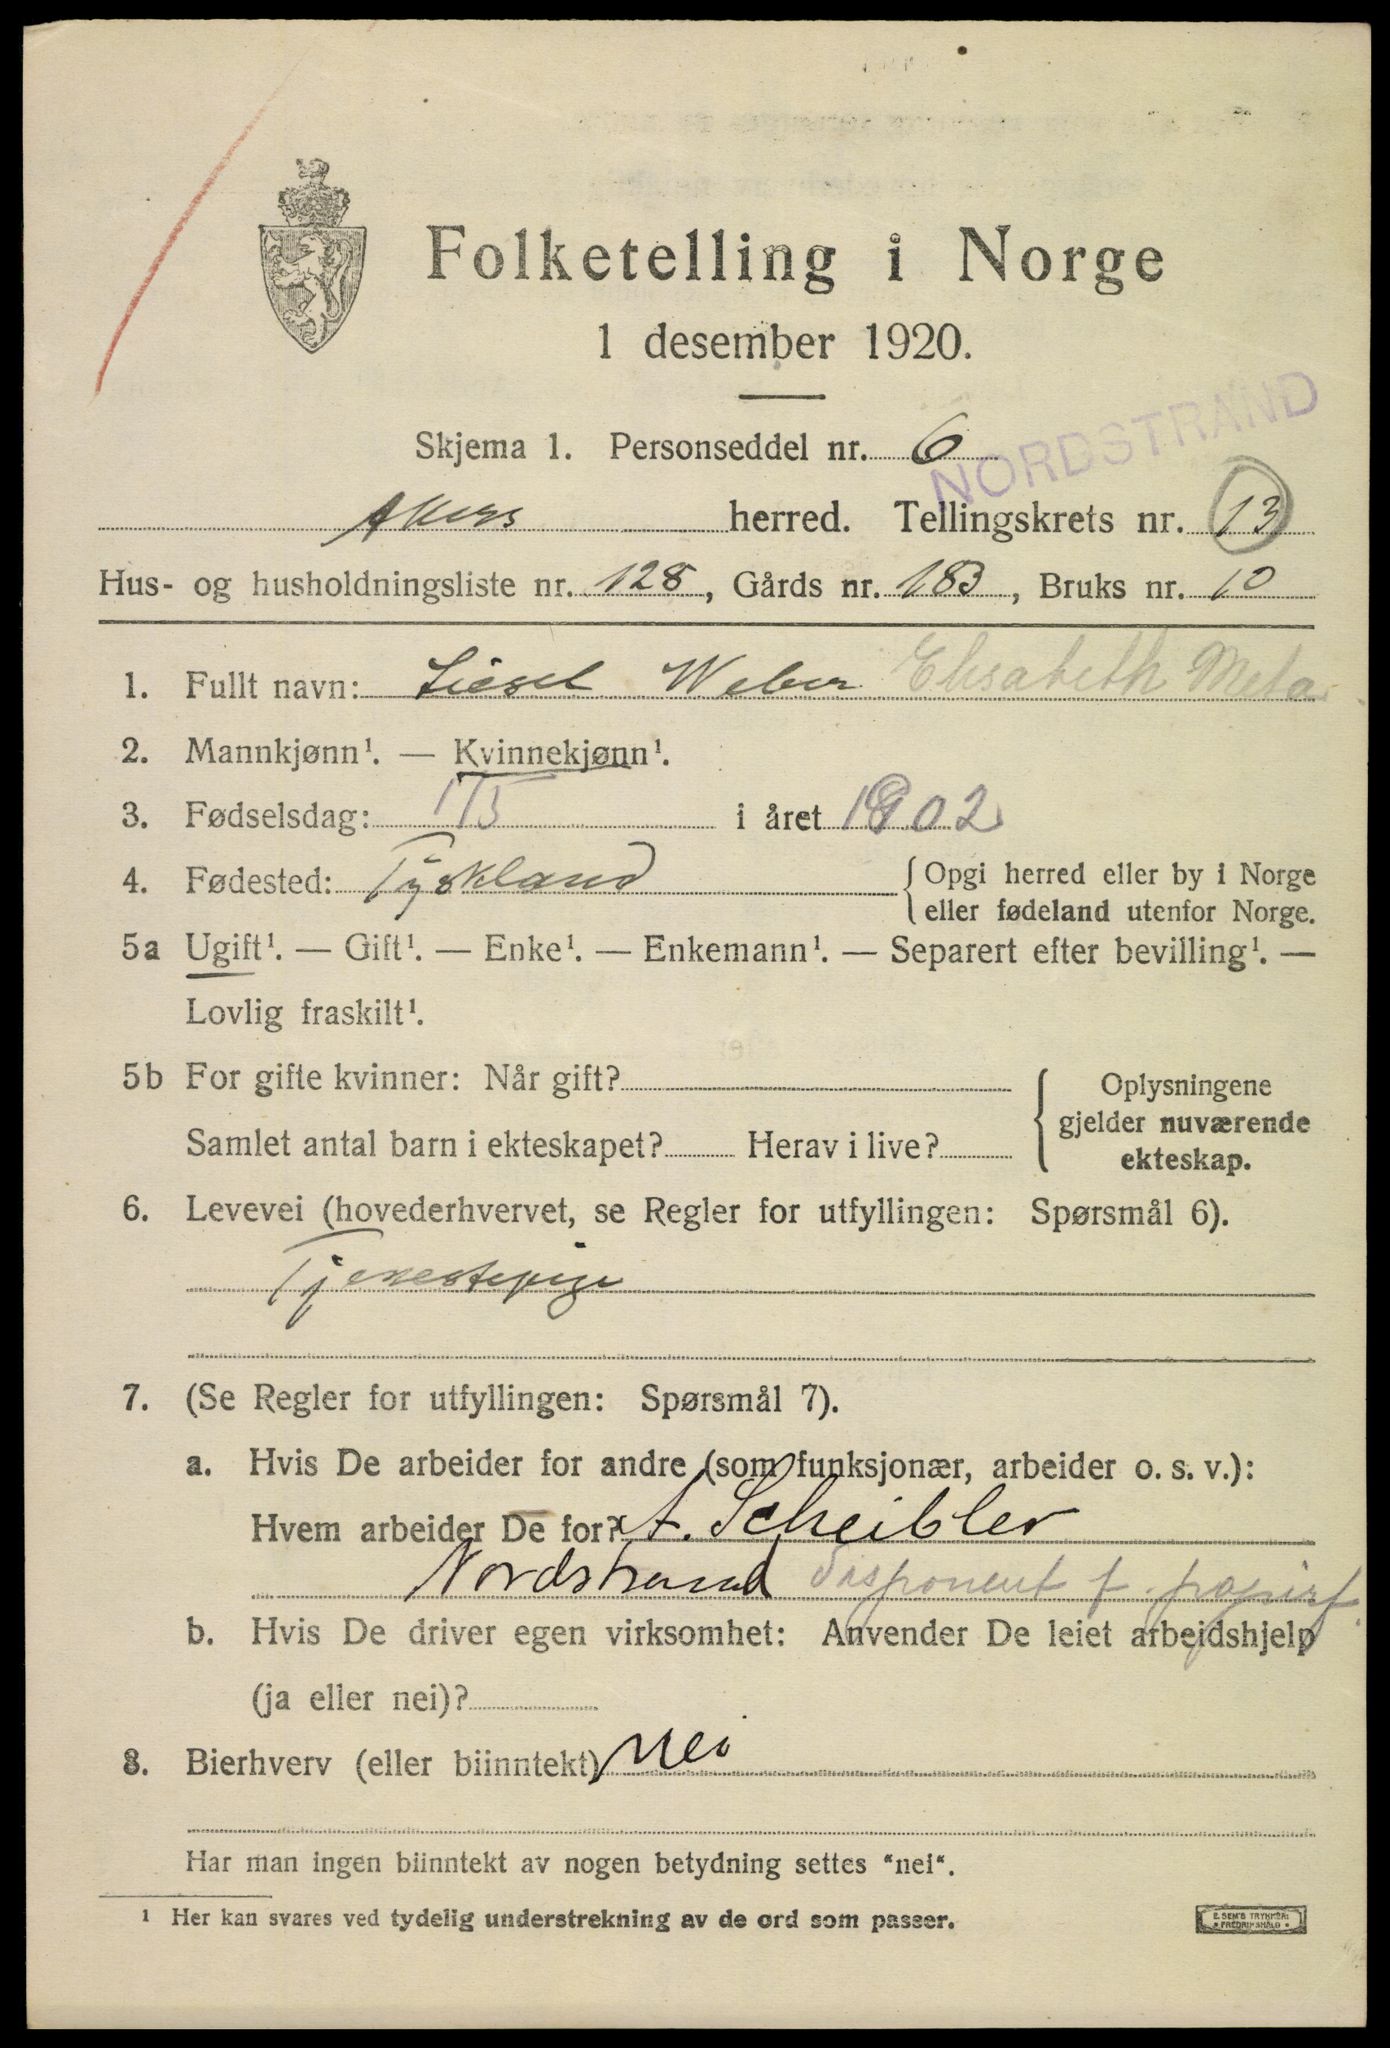 Folketelling i Norge
1 desember 1920.
NORDSTRAND
Skjema 1. Personseddel nr. 6
Akers herred. Tellingskrets nr. 13
Hus- og husholdningsliste nr. 128, Gårds nr. 183, Bruks nr. 10
1. Fullt navn: Liesel Weber Elisabeth Meta
2. Mannkjønn¹. — Kvinnekjønn¹.
3. Fødselsdag: 17/5 i året 1902
4. Fødested: Tyskland { Opgi herred eller by i Norge
eller fødeland utenfor Norge.
5a Ugift¹. — Gift¹. — Enke¹. — Enkemann¹. — Separert efter bevilling¹. —
Lovlig fraskilt¹.
5b For gifte kvinner: Når gift?
Samlet antal barn i ekteskapet? Herav i live?
{ Oplysningene
gjelder nuværende
ekteskap.
6. Levevei (hovederhvervet, se Regler for utfyllingen: Spørsmål 6).
Tjenestepige
7. (Se Regler for utfyllingen: Spørsmål 7).
a. Hvis De arbeider for andre (som funksjonær, arbeider o. s. v.):
Hvem arbeider De for? A. Scheibler
Nordstrand disponent f. papirf.
b. Hvis De driver egen virksomhet: Anvender De leiet arbeidshjelp
(ja eller nei)?
8. Bierhverv (eller biinntekt) Nei
Har man ingen biinntekt av nogen betydning settes "nei".
¹ Her kan svares ved tydelig understrekning av de ord som passer.
E. SEM'S TRYKKERI
FREDRIKSHALD